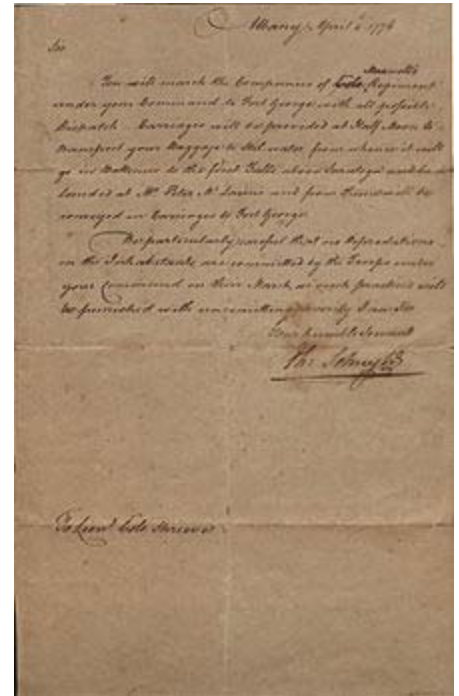 Albany April 6 1776
Sir
Maxwell's
You will march the Companies of Colo Regiment
under your Command to Fort George with all possible
Dispatch. Carriages will be provided at Half Moon to
transport your Baggage to Stil water from whence it will
go in Batteaus to the first Falls above Saratoga and be
landed at Mr Peter and from thence will be
conveyed in Carriages to Fort George.
Be particularly careful that no Depredations
on the Inhabitants are committed by the Troops under
your Command on their March as such practices will
be punished with unremitting severity I am Sir
Your humble Servant
Ph: Schuyler
To Lieut Colo Shreve